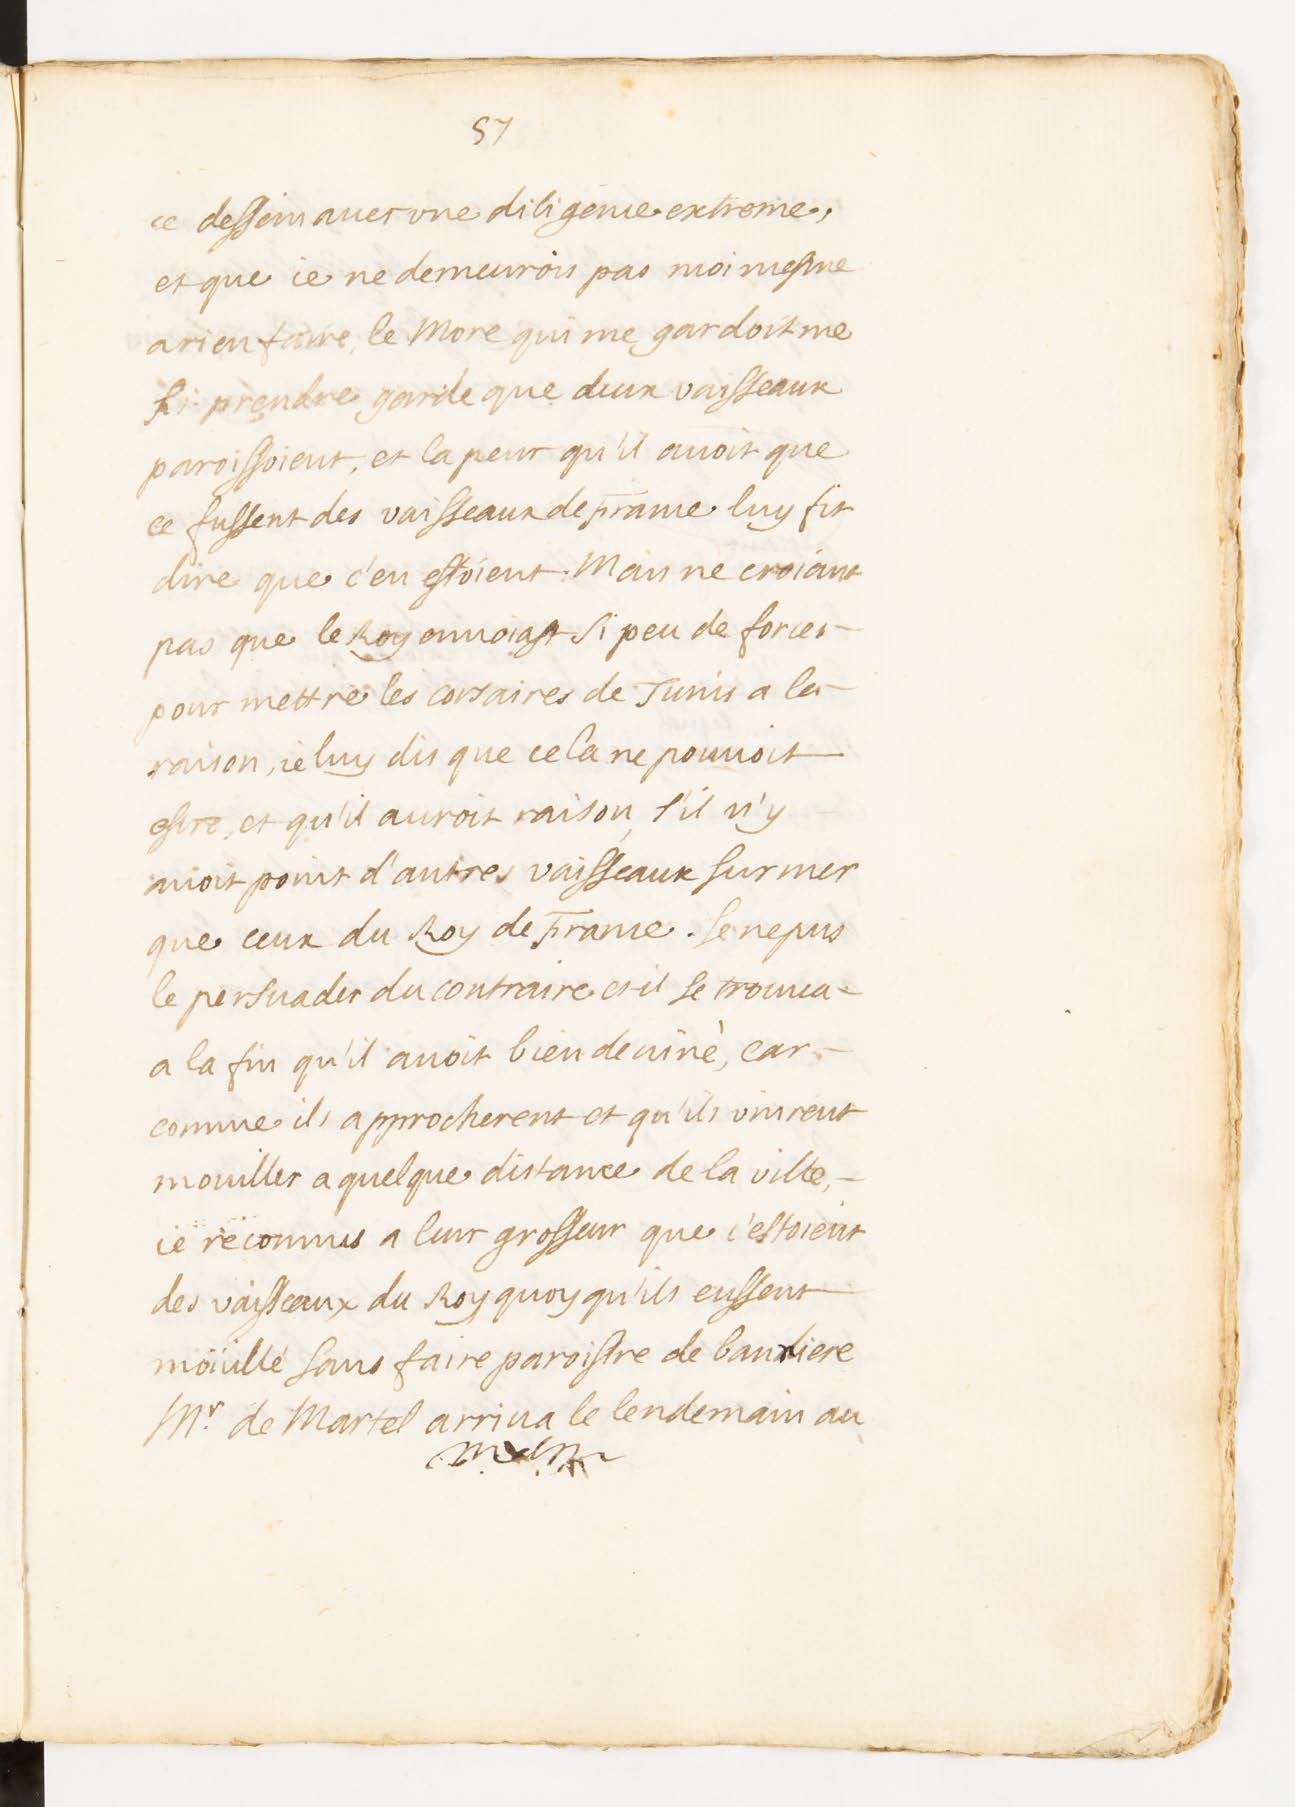 57
ce dessein avec vne diligence extreme,
et que ie ne demeurois pas moi mesme
a rien faire, le More qui me gardoit me
fit prendre garde que deux vaisseaux
paroissoient, et la peur qu'il avoit que
ce fussent des vaisseaux de France luy fit
dire que c'en estoient. Mais ne croiant
pas que le Roy envoiast si peu de forces
pour mettre les corsaires de Tunis a la
raison, ie luy dis que cela ne pouvoit
estre, et qu'il auroit raison, s'il n'y
avoit point d'autres vaisseaux sur mer
que ceux du Roy de France. Je ne pus
le persuader du contraire et il se trouva
a la fin qu'il avoit bien deviné, car
comme ils approcherent et qu'ils vinrent
mouiller a quelque distance de la ville,
ie reconnus a leur grosseur que c'estoient
des vaisseaux du Roy quoy qu'ils eussent
moüillé sans faire paroistre de baniere
Mr. de Martel arriva le lendemain au